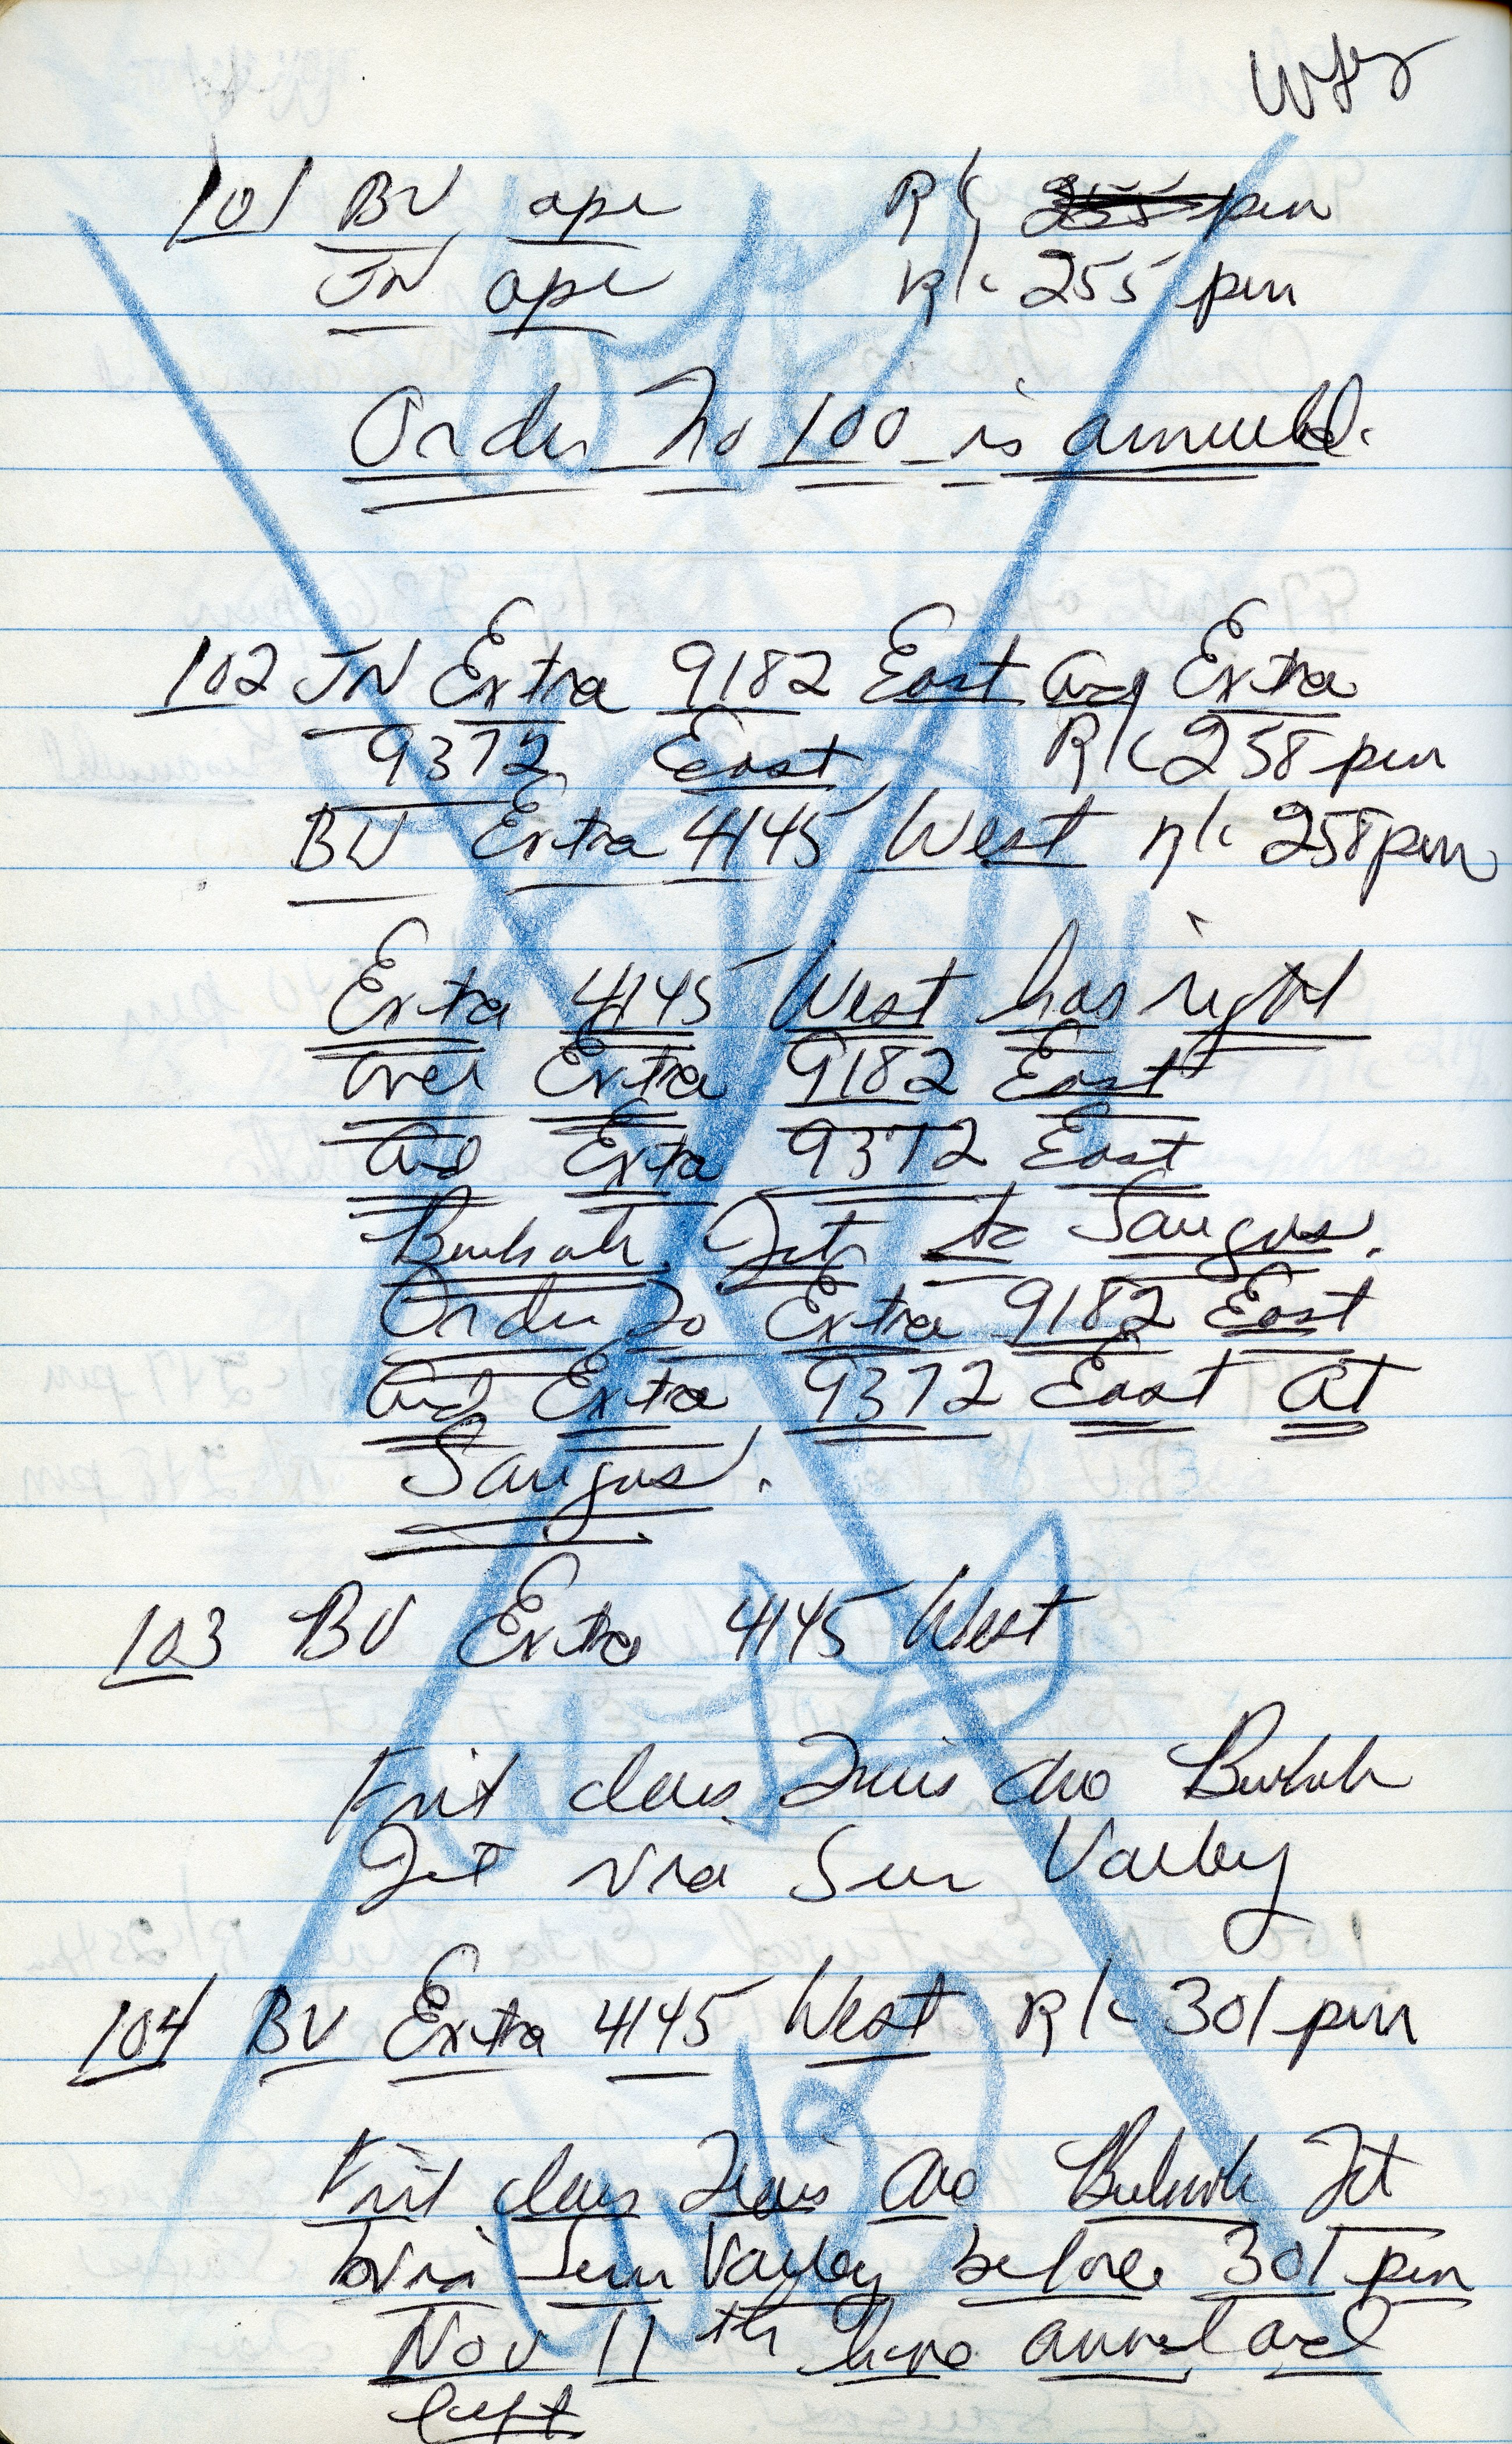 101 BV opr R/c 255 pm
JN opr R/c 255 pm
Order No 100 is annulled.
102 JN Extra 9182 East and Extra
9372 East R/c 258 pm
BV Extra 4145 West r/c 258 pm
Extra 4145 West has right
over Extra 9182 East
and Extra 9372 East
Burbank Jct to Saugus.
Order to Extra 9182 East
and Extra 9372 East at
Saugus.
103 BV Extra 4145 West
First class Trains due Burbank
Jct via Sun Valley
104 BV Extra 4145 West R/c 301 pm
First class Trains due Burbank Jct
via Sun Valley before 301 pm
Nov 11th have arrived and
left